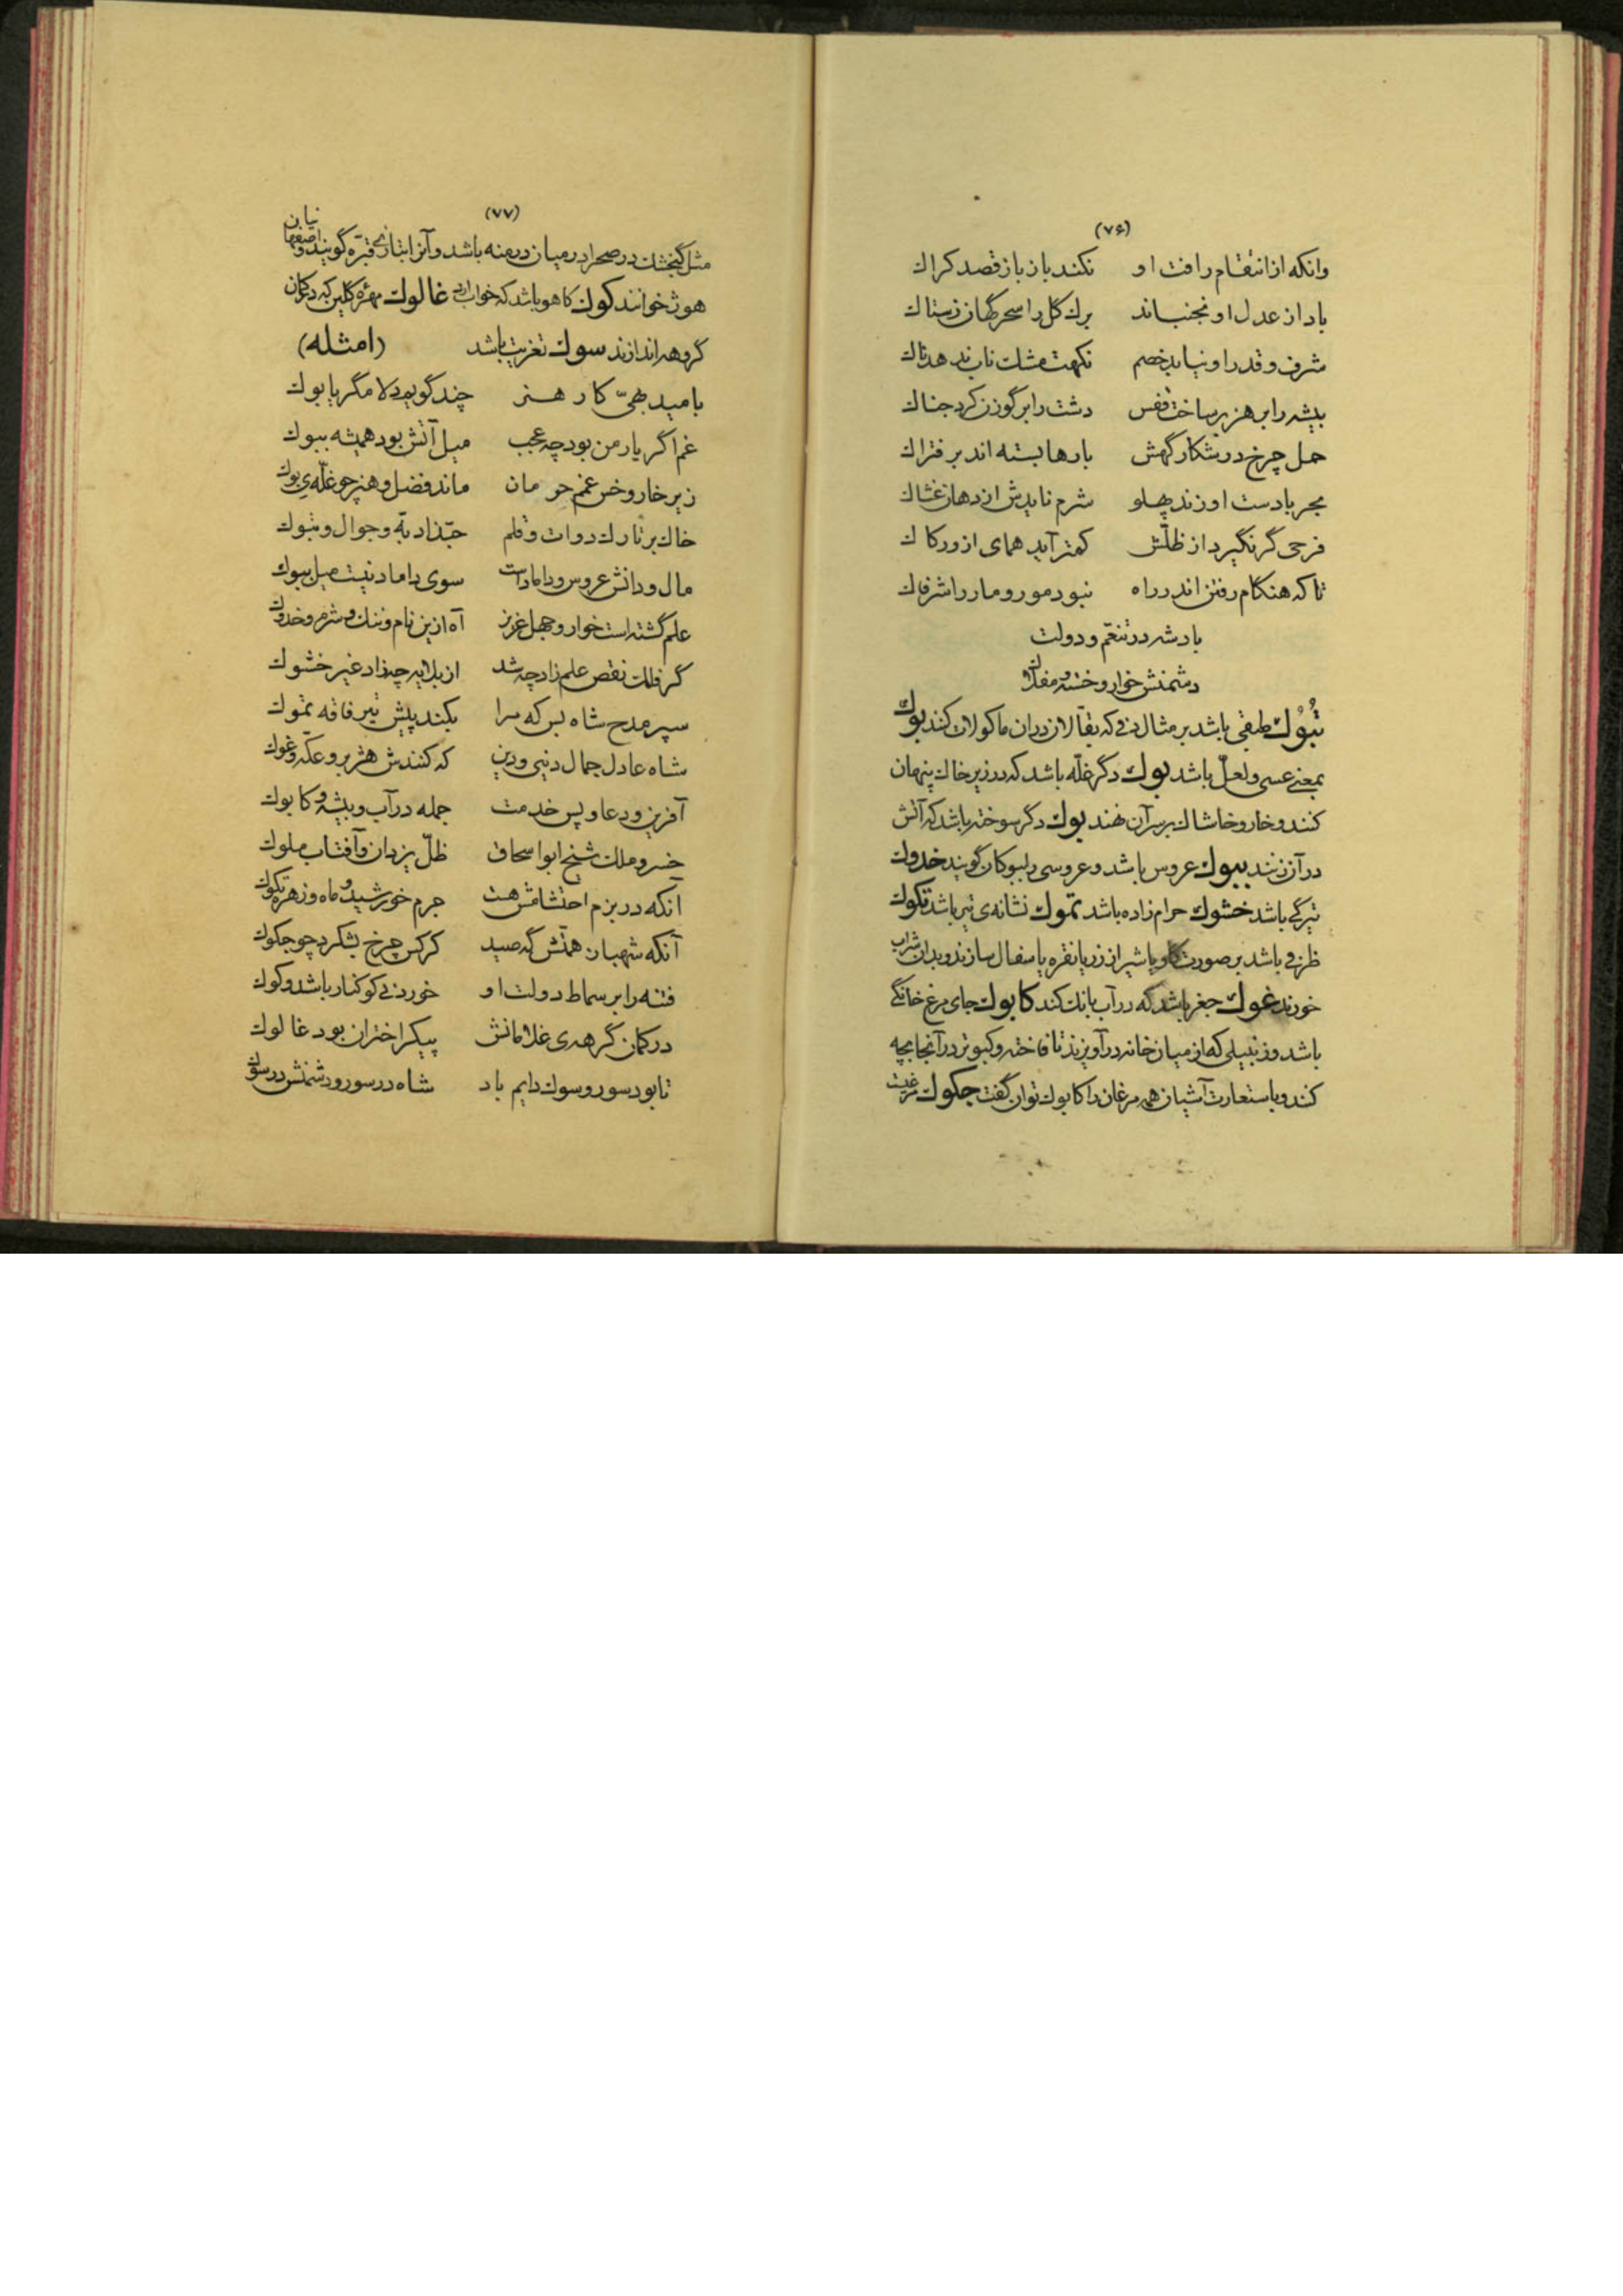 (۷۶)
وانکه از انتقام رافت او نکند باز باز قصد کراک
باد از عدل او نجنباند برک کل را سحرکهان زستاک
شرف و قدر او نیابد خصم نکهت مشک ناب ندهد ناک
بیشه را بر هزبر ساخت قفس دشت را بر گوزن کرد جناک
حمل چرخ در شکار گهش بارها بسته اند بر فتراک
بحر با دست او زند پهلو شرم نایدش از دهان غشاک
فرخی گر نگیرد از ظلّش کمتر آید همای از ورکاک
تا که هنکام رفتن اندر راه نبود مور و مار را شرفاک
باد شه در تنعّم و دولت
دشمنش خوار و خسته و مفلاک
تَبُوُک طبقی باشد بر مثال دفی که بقّالان در ان ماکولات کنند بوک
بمعنی عسی و لعلّ باشد بوک دگر غلّه باشد که در زیر خاک پنهان
کنند و خار و خاشاک بر سر آن نهند بوک دگر سوخته باشد که آتش
در آن زنند بیوک عروس باشد و عروسی را بیوکان گویند خدوک
تیرگی باشد خشوک حرام زاده باشد تموک نشانه‌ی تیر باشد تکوک
ظرفی باشد بر صورت گاو یا شیر از زر یا نقره یا سفال سازند و بدان شراب
خورند غوک جغر باشد که در آب بانک کند کابوک جای مرغ خانگی
باشد و زنبیلی که از میان خانه در آویزند تا فاخته و کبوتر در آنجا بچه
کند و باستعارت آشیان همه مرغان را کابوک توان گفت جکوک مرغیست
(۷۷)
مثل گنجشک در صحرا در میان درمنه باشد و آنرا بتازی قبّره گویند و اصفهانیان
هوژ خوانند کوک کاهو باشد که خواب ارد غالوک مهره گلین که در کمان
گروهه اندازند سوک تعزیت باشد (امثله)
بامید بهیّ کار هنر چند گویم دلا مگر یا بوک
غم اگر یار من بود چه عجب میل آتش بود همیشه ببوک
زیر خار و خس غم حرمان ماند فضل و هنر چو غلّه‌ی بوک
خاک بر تارک دوات و قلم حبّذا دبّه و جوال و تبوک
مال و دانش عروس و داماداست سوی داماد نیست میل بیوک
علم گشته است خوار و جهل عزیز آه ازین نام و ننک و شرم و خدوک
گر فلک نقص علم زاد چه شد از بلایه چه زاد غیر خشوک
سپر مدح شاه بس که مرا بکند پیش تیر فاقه تموک
شاه عادل جمال دنیی و دین که کنندش هژبر و عکّه و غوک
آفرین و دعا و پس خدمت جمله در آب و بیشه و کابوک
خسرو ملک شیخ ابو اسحاق ظلّ یزدان و آفتاب ملوک
آنکه در بزم احتشامش هست جرم خورشید و ماه و زهره تکوک
آنکه شهباز همّتش گه صید کرکس چرخ بشکرد چو جکوک
فتنه را بر سماط دولت او خوردنی کوکنار باشد و کوک
در کمان گرهه‌ی غلامانش پیکر اختران بود غالوک
تا بود سور و سوک دایم باد شاه در سور و دشمنش در سوک